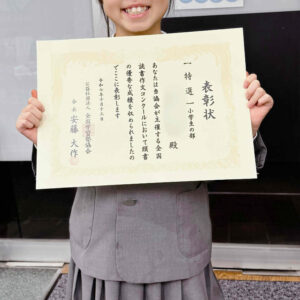 表彰状
一特選一小学生の部
殿
あなたは当協会が主催する全国
読書作文コンクールにおいて頭書
の優秀な成績を収められましたの
でここに表彰します
公益社団法人 全国学習塾協会
会長 安藤大作